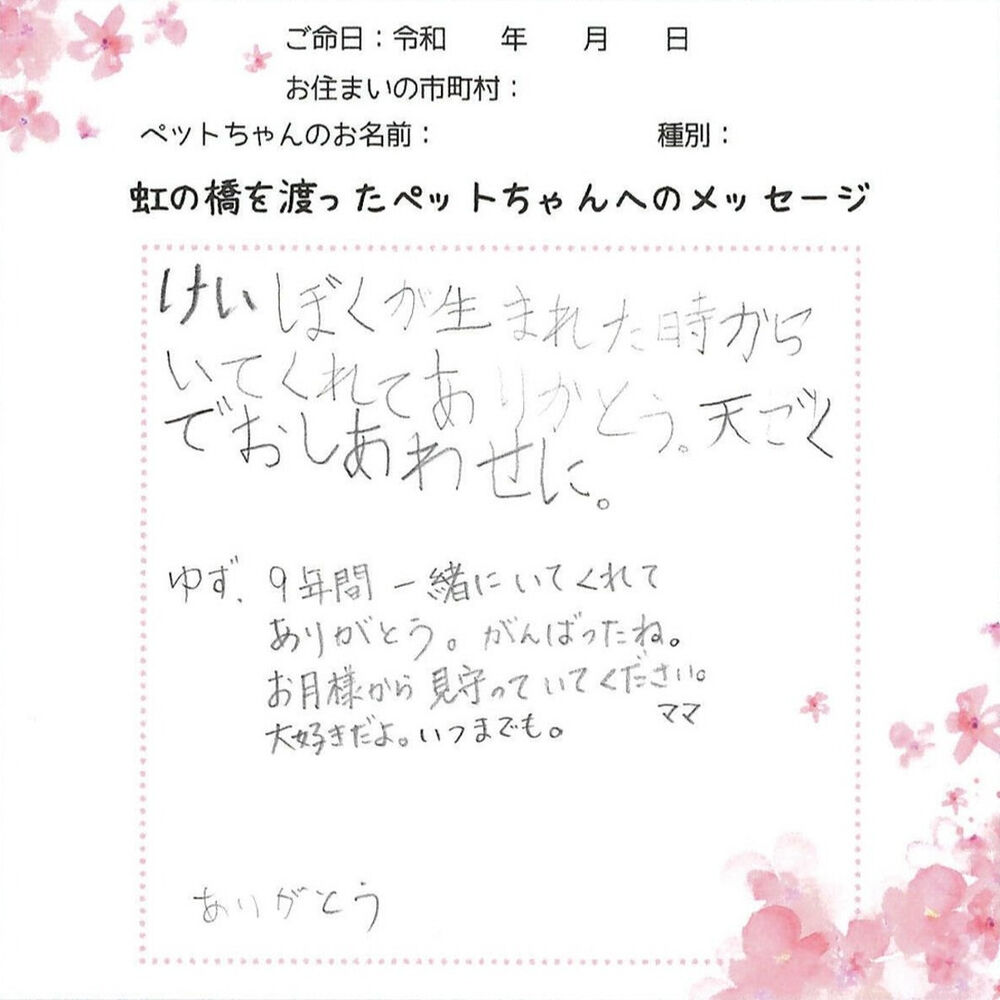 ご命日：令和　　年　　月　　日
お住まいの市町村：
ペットちゃんのお名前：　　　　　　　　種別：
虹の橋を渡ったペットちゃんへのメッセージ
けいぼくが生まれた時から
いてくれてありがとう。天ごく
でおしあわせに。
ゆず、9年間一緒にいてくれて
ありがとう。がんばったね。
お月様から見守っていてください。
大好きだよ。いつまでも。　ママ
ありがとう